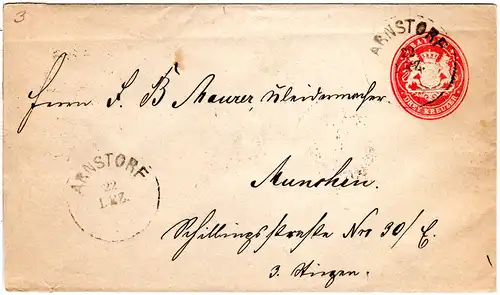 3
ARNSTORF
22
DREI KREUZER
Herrn J. B Maurer, Kleidermacher.
ARNSTORF
22
DEZ.
Munchen.
Schillingsstraße Nro 30/E.
3. Stiegen.